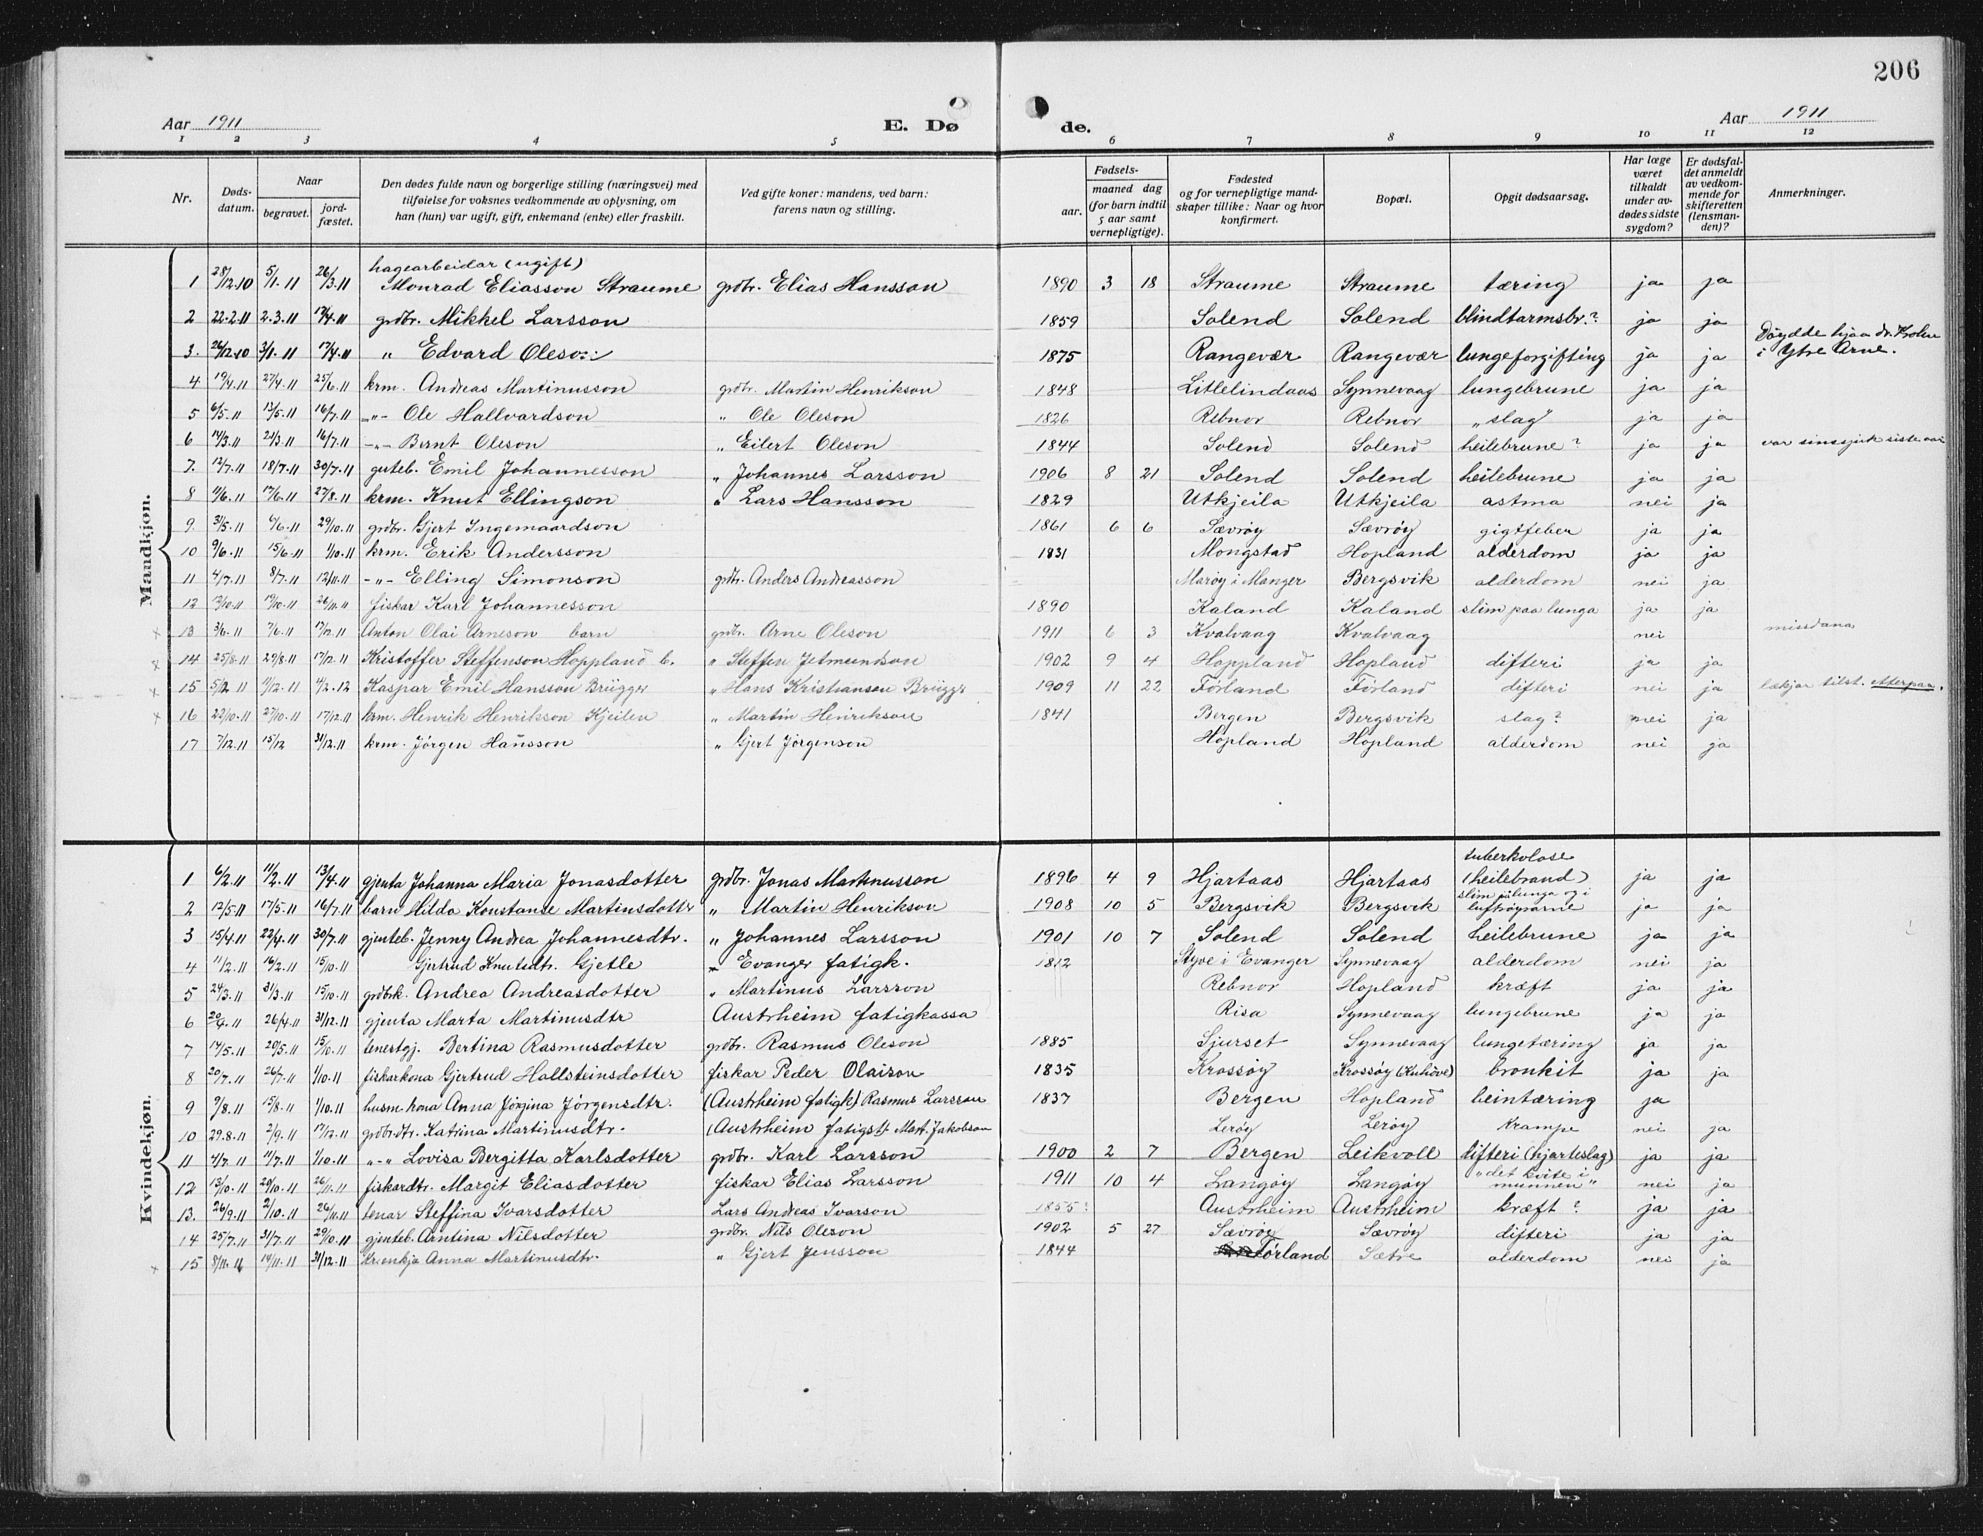 206
Aar 1911
E. Dø
de.
Aar 1911
1 2 3 4 5 6 7 8 9 10 11 12
Nr.
Døds-
datum.
Naar
begravet.
jord-
fæstet.
Den dødes fulde navn og borgerlige stilling (næringsvei) med
tilføielse for voksnes vedkommende av oplysning, om
han (hun) var ugift, gift, enkemand (enke) eller fraskilt.
Ved gifte koner: mandens, ved barn:
farens navn og stilling.
Fødsels-
aar.
maaned dag
(for barn indtil
5 aar samt
vernepligtige).
Fødested
og for vernepligtige mand-
skaper tillike: Naar og hvor
konfirmert.
Bopæl.
Opgit dødsaarsag.
Har læge
været
tilkaldt
under av-
dødes sidste
sygdom?
Er dødsfal-
det anmeldt
av vedkom-
mende for
skifteretten
(lensman-
den)?
Anmerkninger.
Mandkjøn.
hagearbeidar (ugift)
1 28/12.10 5/1.11 26/3.11 Monrad Eliasson Straume grdbr. Elias Hansson 1890 3 18 Straume Straume tæring ja ja
2 22.2.11 2.3.11 17/4.11 grdbr. Mikkel Larsson 1859 Solend Solend blindtarmsbr.? ja ja
3. 26/12.10 3/1.11 17/4.11 " Edvard Oleson 1875 Rangevær Rangevær lungeforgifting ja ja Døydde hjaa dr. Krohn
i Ytre Arne.
4 19/4.11 27/4.11 25/6.11 krm. Andreas Martinusson grdbr. Martin Henrikson 1848 Litlelindaas Synnevaag lungebrune ja ja
5 6/5.11 13/5.11 16/7.11 -"- Ole Hallvardson " Ole Oleson 1826 Rebnor Rebnor "slag" ja ja
6 14/3.11 21/3.11 16/7.11 -"- Bernt Oleson " Eilert Oleson 1844 Solend Solend heilebrune? ja ja var sinssjuk siste aar
7. 12/7.11 18/7.11 30/7.11 guteb. Emil Johannesson " Johannes Larsson 1906 8 21 Solend Solend heilebrune ja ja
8 11/6.11 17/6.11 27/8.11 krm. Knut Ellingson " Lars Hansson 1829 Utkjeila Utkjeila astma nei ja
9. 31/5.11 6/6.11 29/10.11 grdbr. Gjert Ingemaardson 1861 6 6 Sævrøy Sævrøy gigtfeber ja ja
10 9/6.11 15/6.11 1/10.11 krm. Erik Andersson 1831 Mongstad Hopland alderdom ja ja
11 4/7.11 8/7.11 12/11.11 -"- Elling Simonson grdbr. Anders Andreasson Marøy i Manger Bergsvik alderdom nei ja
12 12/10.11 19/10.11 26/11.11 fiskar Karl Johannesson 1890 Kaland Kaland slim paa lunga ja ja
x 13 3/6.11 7/6.11 17/12.11 Anton Olai Arneson barn grdbr. Arne Oleson 1911 6 3 Kvalvaag Kvalvaag nei missdana
x 14 25/8.11 29/8.11 17/12.11 Kristoffer Steffenson Hoppland b. " Steffen Jetmundson 1902 9 4 Hoppland Hopland difteri ja ja
x 15 5/12 11 11/12.11 4/2.12 Kaspar Emil Hansson Brügger " Hans Kristiansen Brügger 1909 11 22 Førland Førland difteri nei ja lækjar tilst. etterpaa.
x 16 22/10.11 27/10.11 17/12.11 krm. Henrik Henrikson Kjeilen " Martin Henrikson 1841 Bergen Bergsvik slag? nei ja
17 7/12.11 15/12 31/12.11 krm. Jørgen Hansson " Gjert Jørgenson Hopland Hopland alderdom nei ja
Kvindekjøn.
1 6/2.11 11/2.11 13/4.11 gjenta Johanna Maria Jonasdotter grdbr. Jonas Martinusson 1896 4 9 Hjartaas Hjartaas tuberkolose
(heilebrand) ja ja
2 12/5.11 17/5.11 16/7.11 barn Hilda Konstanse Martinsdotter " Martin Henrikson 1908 10 5 Bergsvik Bergsvik slim på lunga og i
luftrøyrarne ja ja
3 15/4.11 22/4.11 30/7.11 gjenteb. Jenny Andrea Johannesdtr. " Johannes Larsson 1901 10 7 Solend Solend heilebrune ja ja
4 11/2.11 16/2.11 15/10.11 Gjertrud Knutsdtr. Gjetle " Evanger fatigk. 1812 Styve i Evanger Synnevaag alderdom nei ja
5 24/3.11 31/3.11 15/10.11 grdbrk. Andrea Andreasdotter " Martinus Larsson Rebnor Hopland kræft ja ja
6 20/4.11 26/4.11 31/12.11 gjenta Marta Martinusdtr Austrheim fatigkassa Risa Synnevaag lungebrune ja ja
7 14/5.11 20/5.11 15/10.11 tenestgj. Bertina Rasmusdotter grdbr. Rasmus Oleson 1885 Sjurset Synnevaag lungetæring ja ja
8 20/7.11 26/7.11 1/10.11 fiskarkona Gjertrud Hallsteinsdotter fiskar Peder Olaison 1835 Krossøy Krossøy (Kuhöve) bronkit ja ja
9 9/8.11 15/8.11 1/10.11 husm.kona Anna Jørgina Jørgensdtr. (Austrheim fatigk) Rasmus Larsson 1837 Bergen Hopland beintæring ja
10 29.8.11 2/9.11 17/12.11 grdbrdtr. Katrina Martinusdtr. (Austrheim fatigst Mart. Jakobson Lerøy Lerøy Krampe nei ja
11 4/7.11 11/7.11 1/10.11 "-" Lovisa Bergitta Karlsdotter grdbr. Karl Larsson 1900 2 7 Bergen Leikvoll difteri (hjarteslag) ja ja
12 13/10.11 20/10.11 26/11.11 fiskardtr. Margit Eliasdotter fiskar Elias Larsson 1911 10 4 Langøy Langøy "det kvite i
munnen" nei ja
13. 26/9.11 2/10.11 26/11.11 tenar Steffina Ivarsdotter Lars Andreas Ivarson 1855? Austrheim Austrheim kræft? ja ja
14 25/7.11 31/7.11 29/10.11 gjenteb. Cantina Nilsdotter grdbr. Nils Oleson 1902 5 27 Sævrøy Sævrøy difteri ja ja
x 15 8/11.11 14/11.11 31/12.11 Kr.enkja Anna Martinusdtr. " Gjert Jensson 1844 Førland Sætre alderdom nei ja